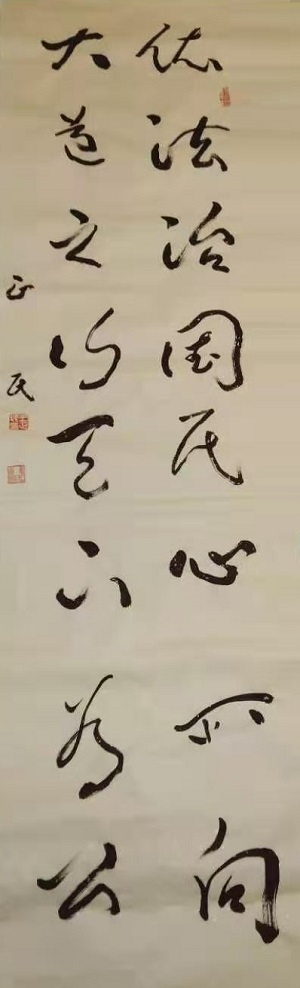 依法治国民心所向
大道之行天下为公
正民